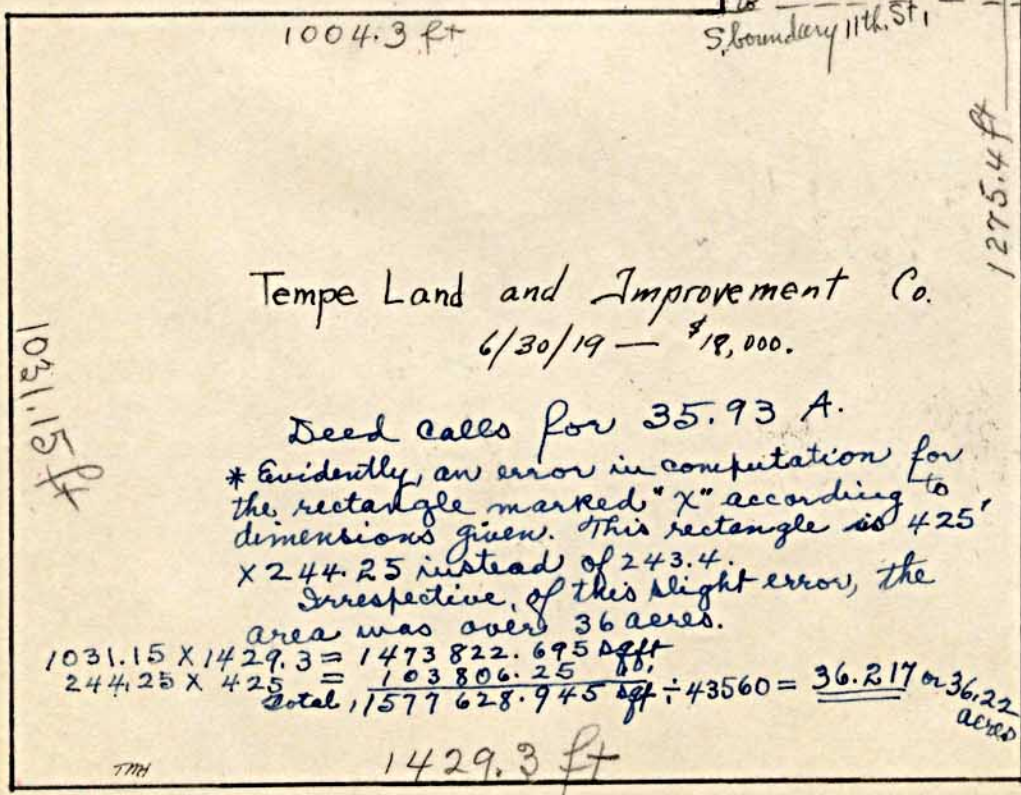 1004.3 ft
S. boundary 11th. St.
1275.4 ft
Tempe Land and Improvement Co.
6/30/19 — $18,000.
1031.15 ft
Deed calls for 35.93 A.
* Evidently, an error in computation for
the rectangle marked "X" according to
dimensions given. This rectangle is 425'
X 244.25 instead of 243.4.
Irrespective, of this slight error, the
area was over 36 acres.
1031.15 X 1429.3 = 1473822.695 sqft
244.25 X 425 = 103806.25 "
Total, 1577628.945 sqf. ÷ 43560 = 36.217 or 36.22
acres
1429.3 ft